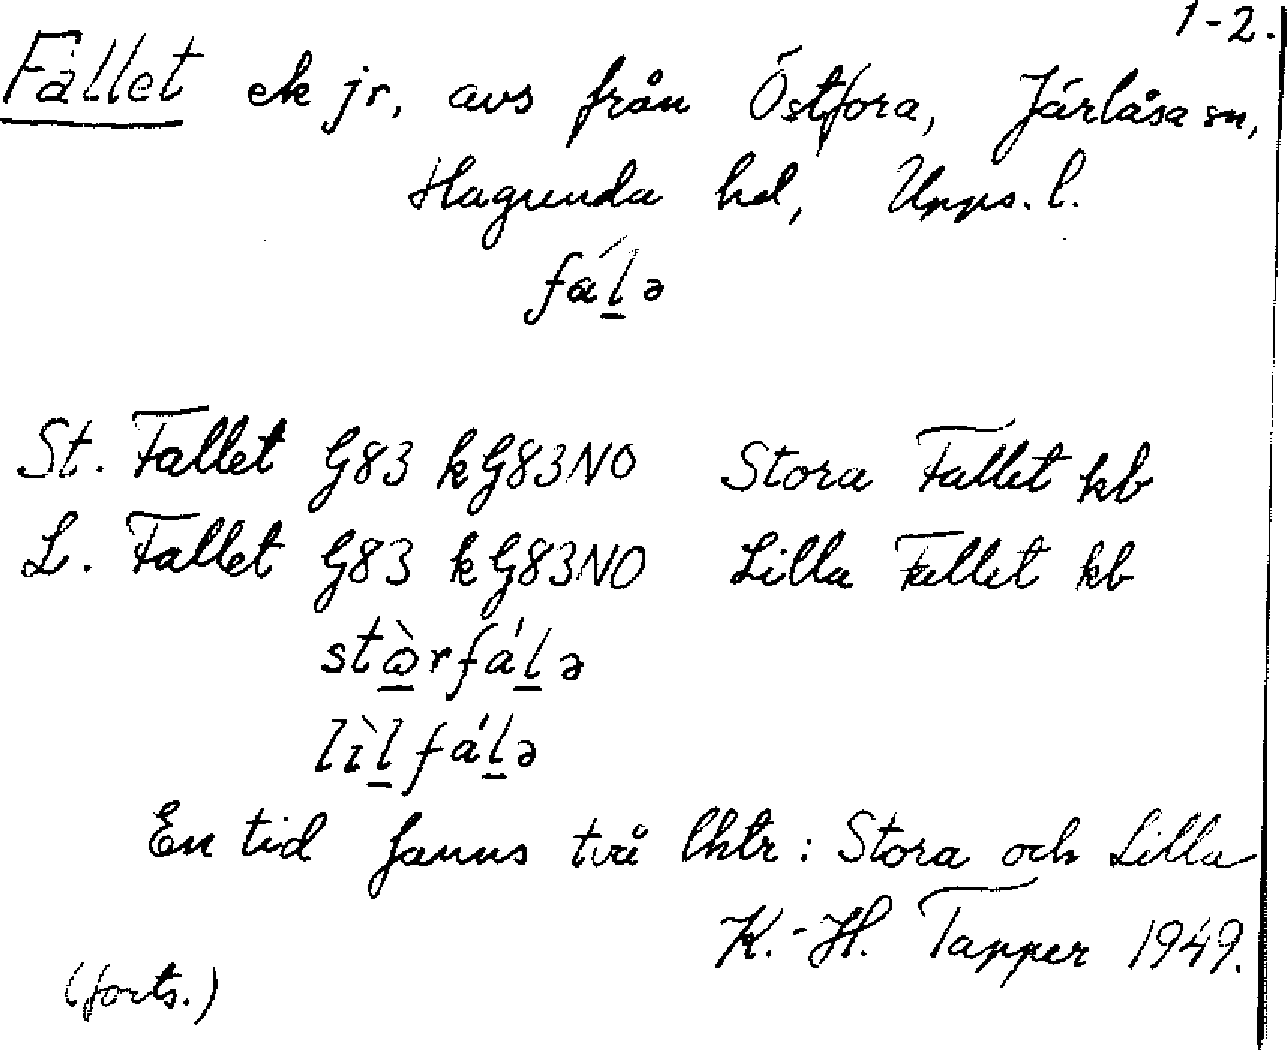 1-2.
Fallet ek jr, avs från Östfora, Järlåsa sn,
Hagunda hd, Upps. l.
fál̲ə
St. Fallet G83 kG83NO Stora Fallet kb
L. Fallet G83 kG83NO Lilla Fallet kb
fál̲ə
lìl̲fál̲ə
En tid fanns två lhtr: Stora och Lilla
K.-H. Tapper 1949.
(forts.)